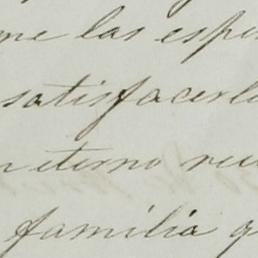 me las espe
satisfacerl
n eterno rec
familia q